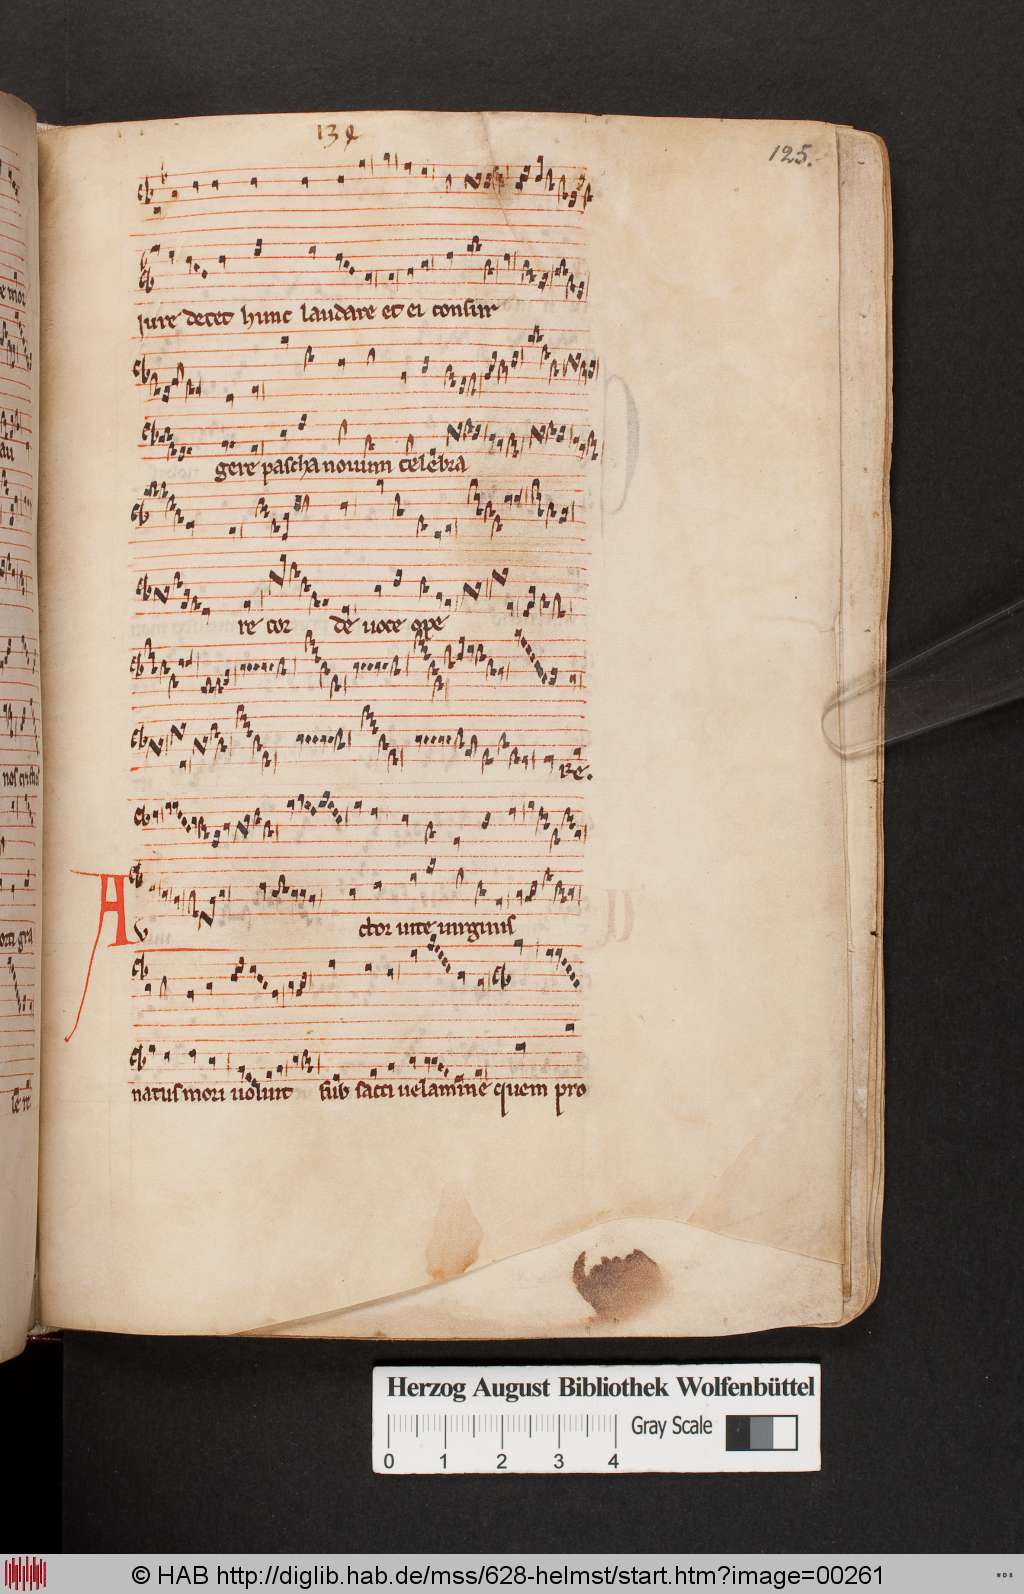 134
125.
iure decet hunc laudare et ei consur
gere pascha novum celebra
re cor de voce ope
re.
A
ctor vite virginis
natus mori voluit sub sacci velamine quem pro
nos
Herzog August Bibliothek Wolfenbüttel
Gray Scale
0 1 2 3 4
© HAB http://diglib.hab.de/mss/628-helmst/start.htm?image=00261